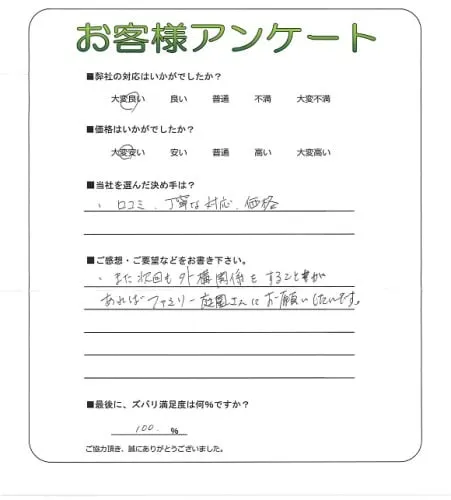 お客様アンケート
■弊社の対応はいかがでしたか？
大変良い 良い 普通 不満 大変不満
■価格はいかがでしたか？
大変安い 安い 普通 高い 大変高い
■当社を選んだ決め手は？
・口コミ、丁寧な対応、価格
■ご感想・ご要望などをお書き下さい。
・また次回も外構関係をすること事が
あればファミリー庭園さんにお願いしたいです。
■最後に、ズバリ満足度は何%ですか？
100. %
ご協力頂き、誠にありがとうございました。